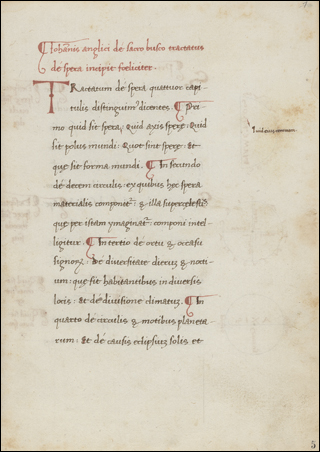 Iohannis anglici de sacro busco tractatus
de spera incipit foeliciter.
TRactatum de spera quattuor capi
tulis distinguimꝰ dicentes. Pri
mo quid sit spera, Quid axis spere, Quid
sit polus mundi. Quot sint spere. Et
que sit forma mundi. In secundo
de decem circulis. ex quibus hec spera
materialis componitᷣ. & illa supercelestis
que per istam ymaginatᷣ. componi intel-
ligitur. In tertio de ortu & occasu
signoꝝ. De diuersitate dierum & nocti-
um. que fit habitantibus in diuersis
locis. Et de diuisione climatum. In
quarto de circulis & motibus planeta-
rum. Et de causis eclipsium solis et
5